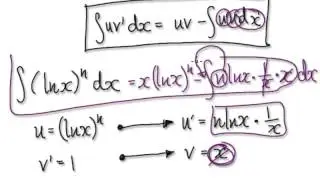 ∫uv' dx = uv - ∫vu'dx
∫(ln x)ⁿ dx = x(ln x)ⁿ - ∫ n ln x · 1/x · x dx
u = (ln x)ⁿ → u' = n ln x · 1/x
v' = 1 → v = x